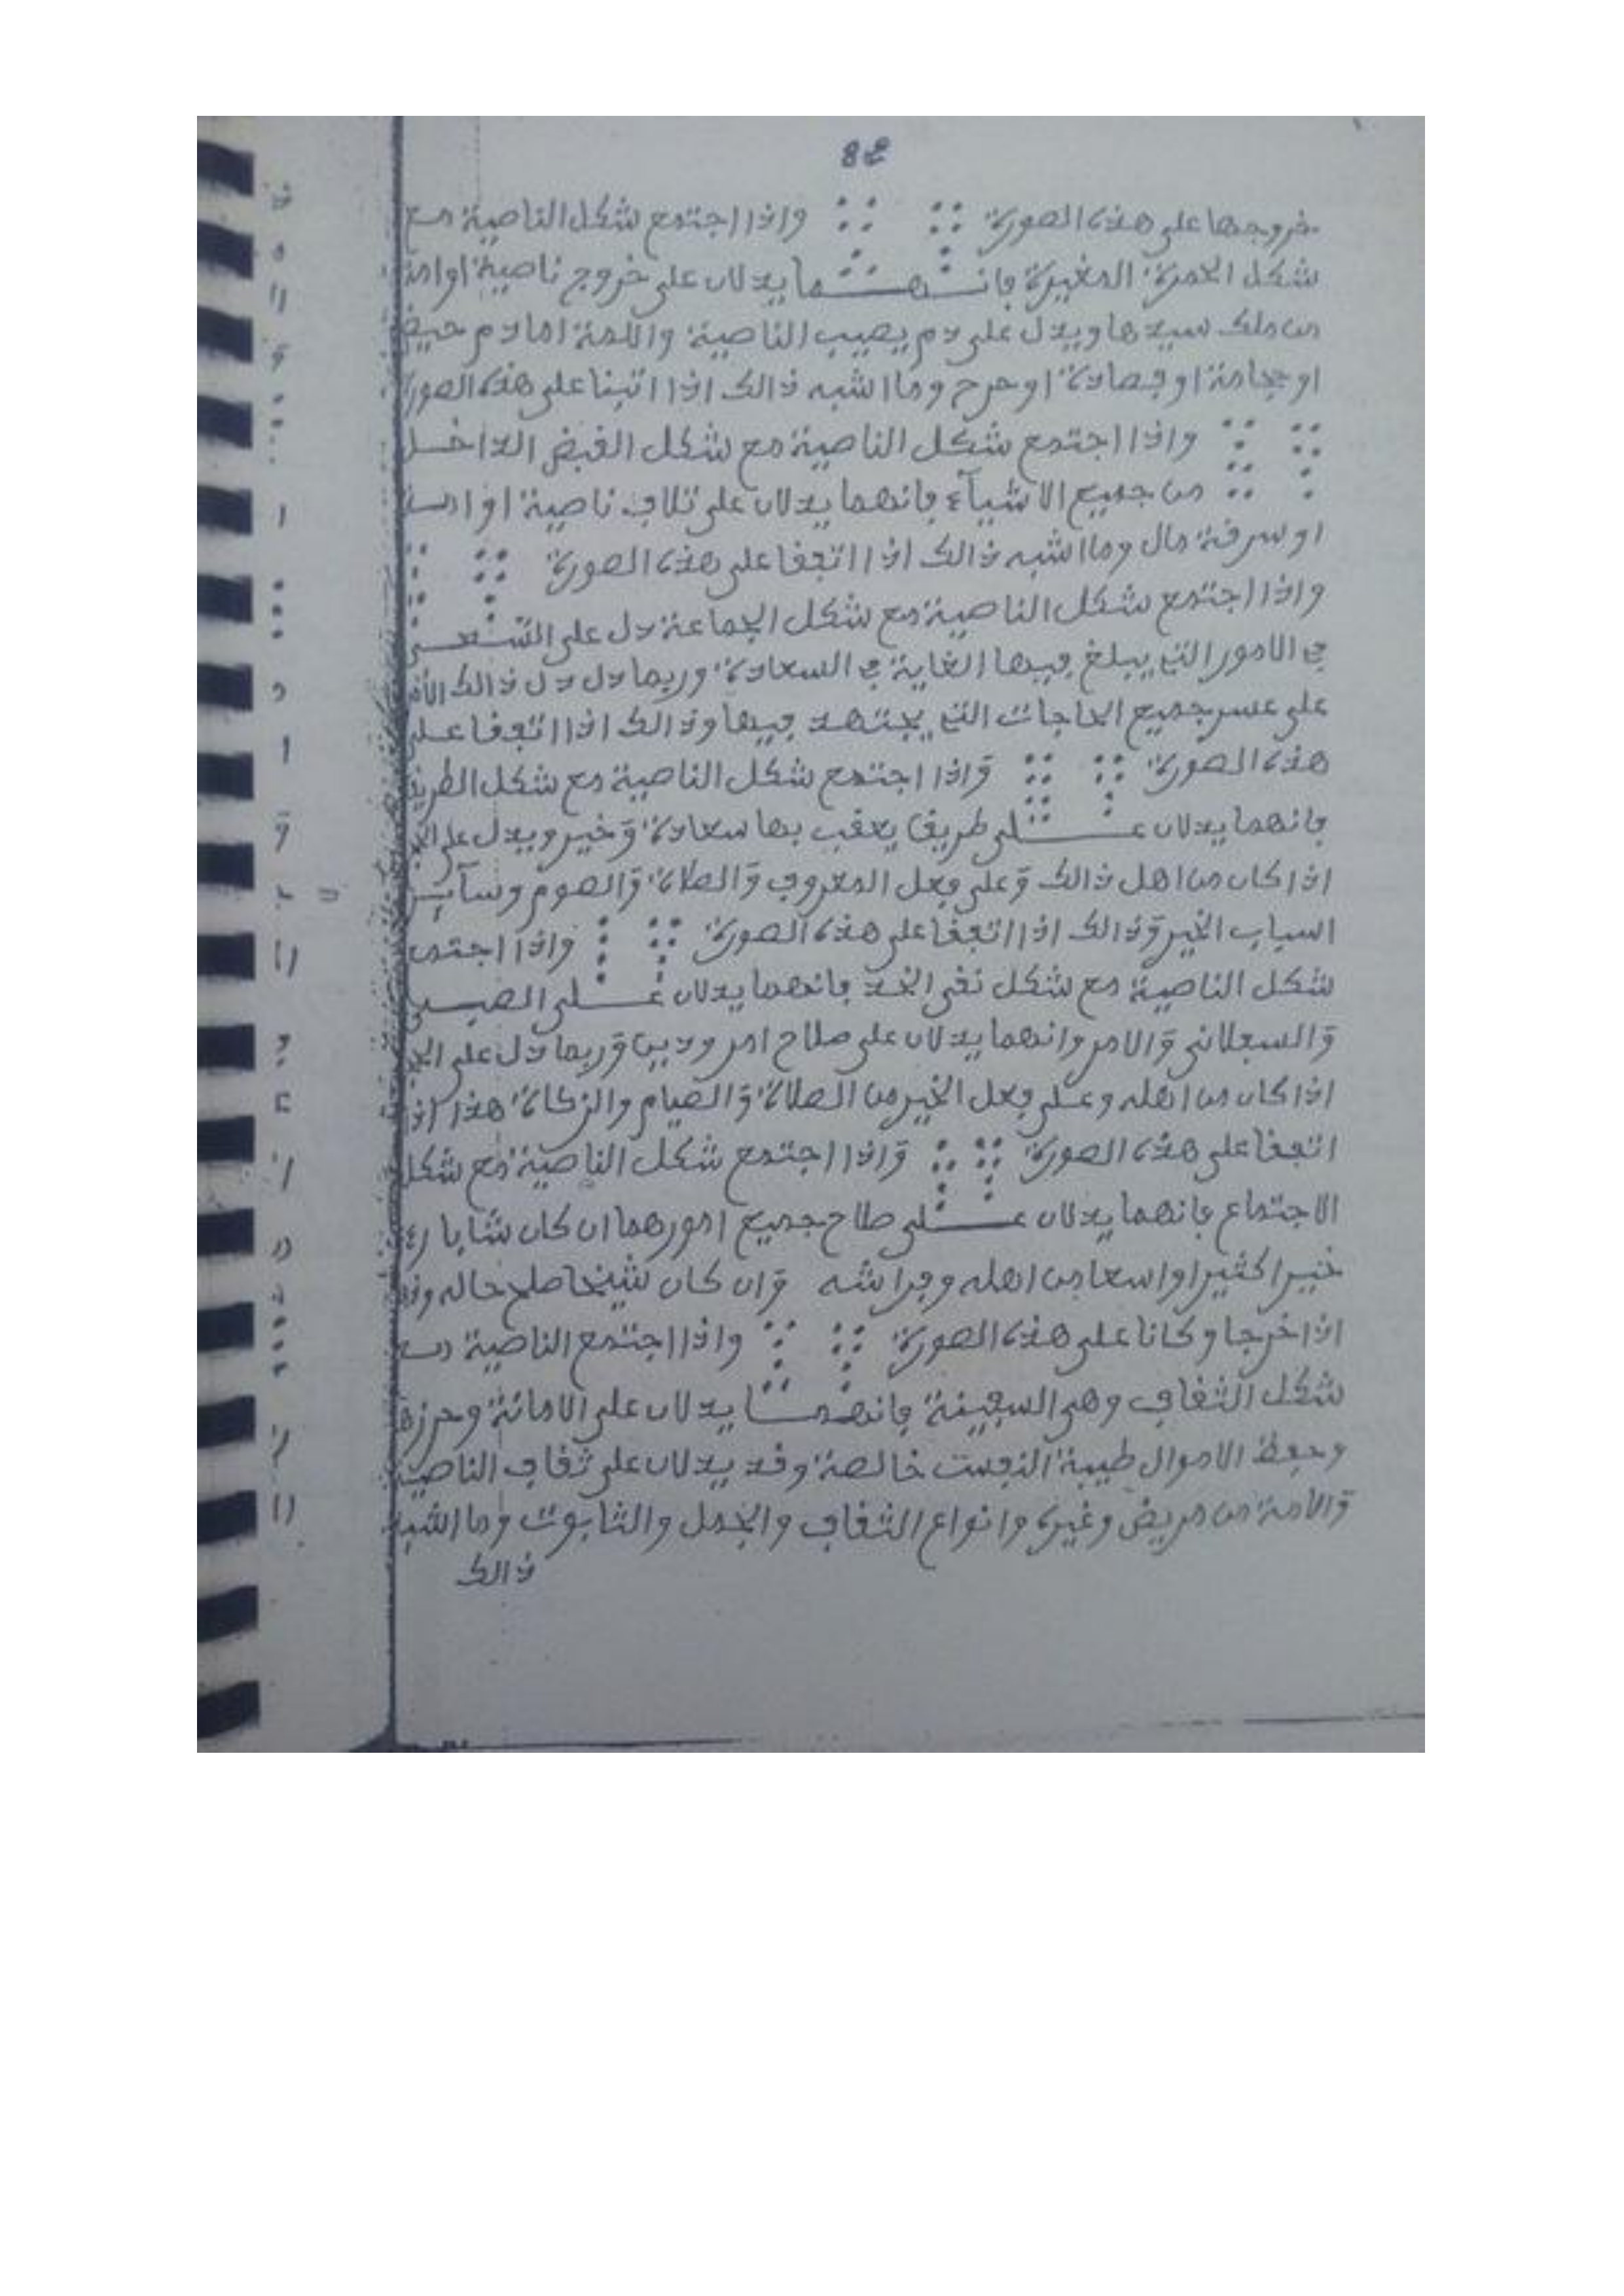 خروجها على هذه الصورة واذا اجتمع شكل الناصية مع
شكل الحمرة المغيرة فانهما يدلان على خروج ناصية او امة
من ملك سيدها ويدل على دم يصيب الناصية والامة اما دم حيض
او حجامة او فصادة او جرح وما اشبه ذالك اذا اتبنا على هذه الصورة
واذا اجتمع شكل الناصية مع شكل القبض الداخل
من جميع الاشيآء فانهما يدلان على تلاف ناصية او امة
او سرقة مال وما اشبه ذالك اذا اتفقا على هذه الصورة
واذا اجتمع شكل الناصية مع شكل الجماعة دل على
في الامور التي يبلغ فيها الغاية في السعادة وربما دل دل ذالك
على عسر جميع الحاجات التي يجتهد فيها وذالك اذا اتفقا على
هذه الصورة واذا اجتمع شكل الناصية مع شكل الطريق
فانهما يدلان على طريق يعقب بها سعادة وخير ويدل على
اذا كان من اهل ذالك وعلى فعل المعروف والصلاة والصوم وسآئر
اسباب الخير وذالك اذا اتفقا على هذه الصورة واذا اجتمع
شكل الناصية مع شكل نقي الخد فانهما يدلان على الصبي
والامر وانهما يدلان على صلاح امر ودين وربما دل على
اذا كان من اهله وعلى فعل الخير من الصلاة والصيام والزكاة هذا اذا
اتفقا على هذه الصورة واذا اجتمع شكل الناصية مع شكل
الاجتماع فانهما يدلان على صلاح جميع امورهما ان كان شابا
خيرا كثيرا واسعا من اهله وفراشه وان كان شيخا صلح حاله
اذا خرجا وكانا على هذه الصورة واذا اجتمع الناصية مع
شكل الثقاف وهي السفينة فانهما يدلان على الامانة وحرزها
وحفظ الاموال طيبة النفس خالصة وقد يدلان على ثقاف الناصية
والامة من مريض وغيره وانواع الثقاف والحمل والثابوت وما اشبه
ذالك